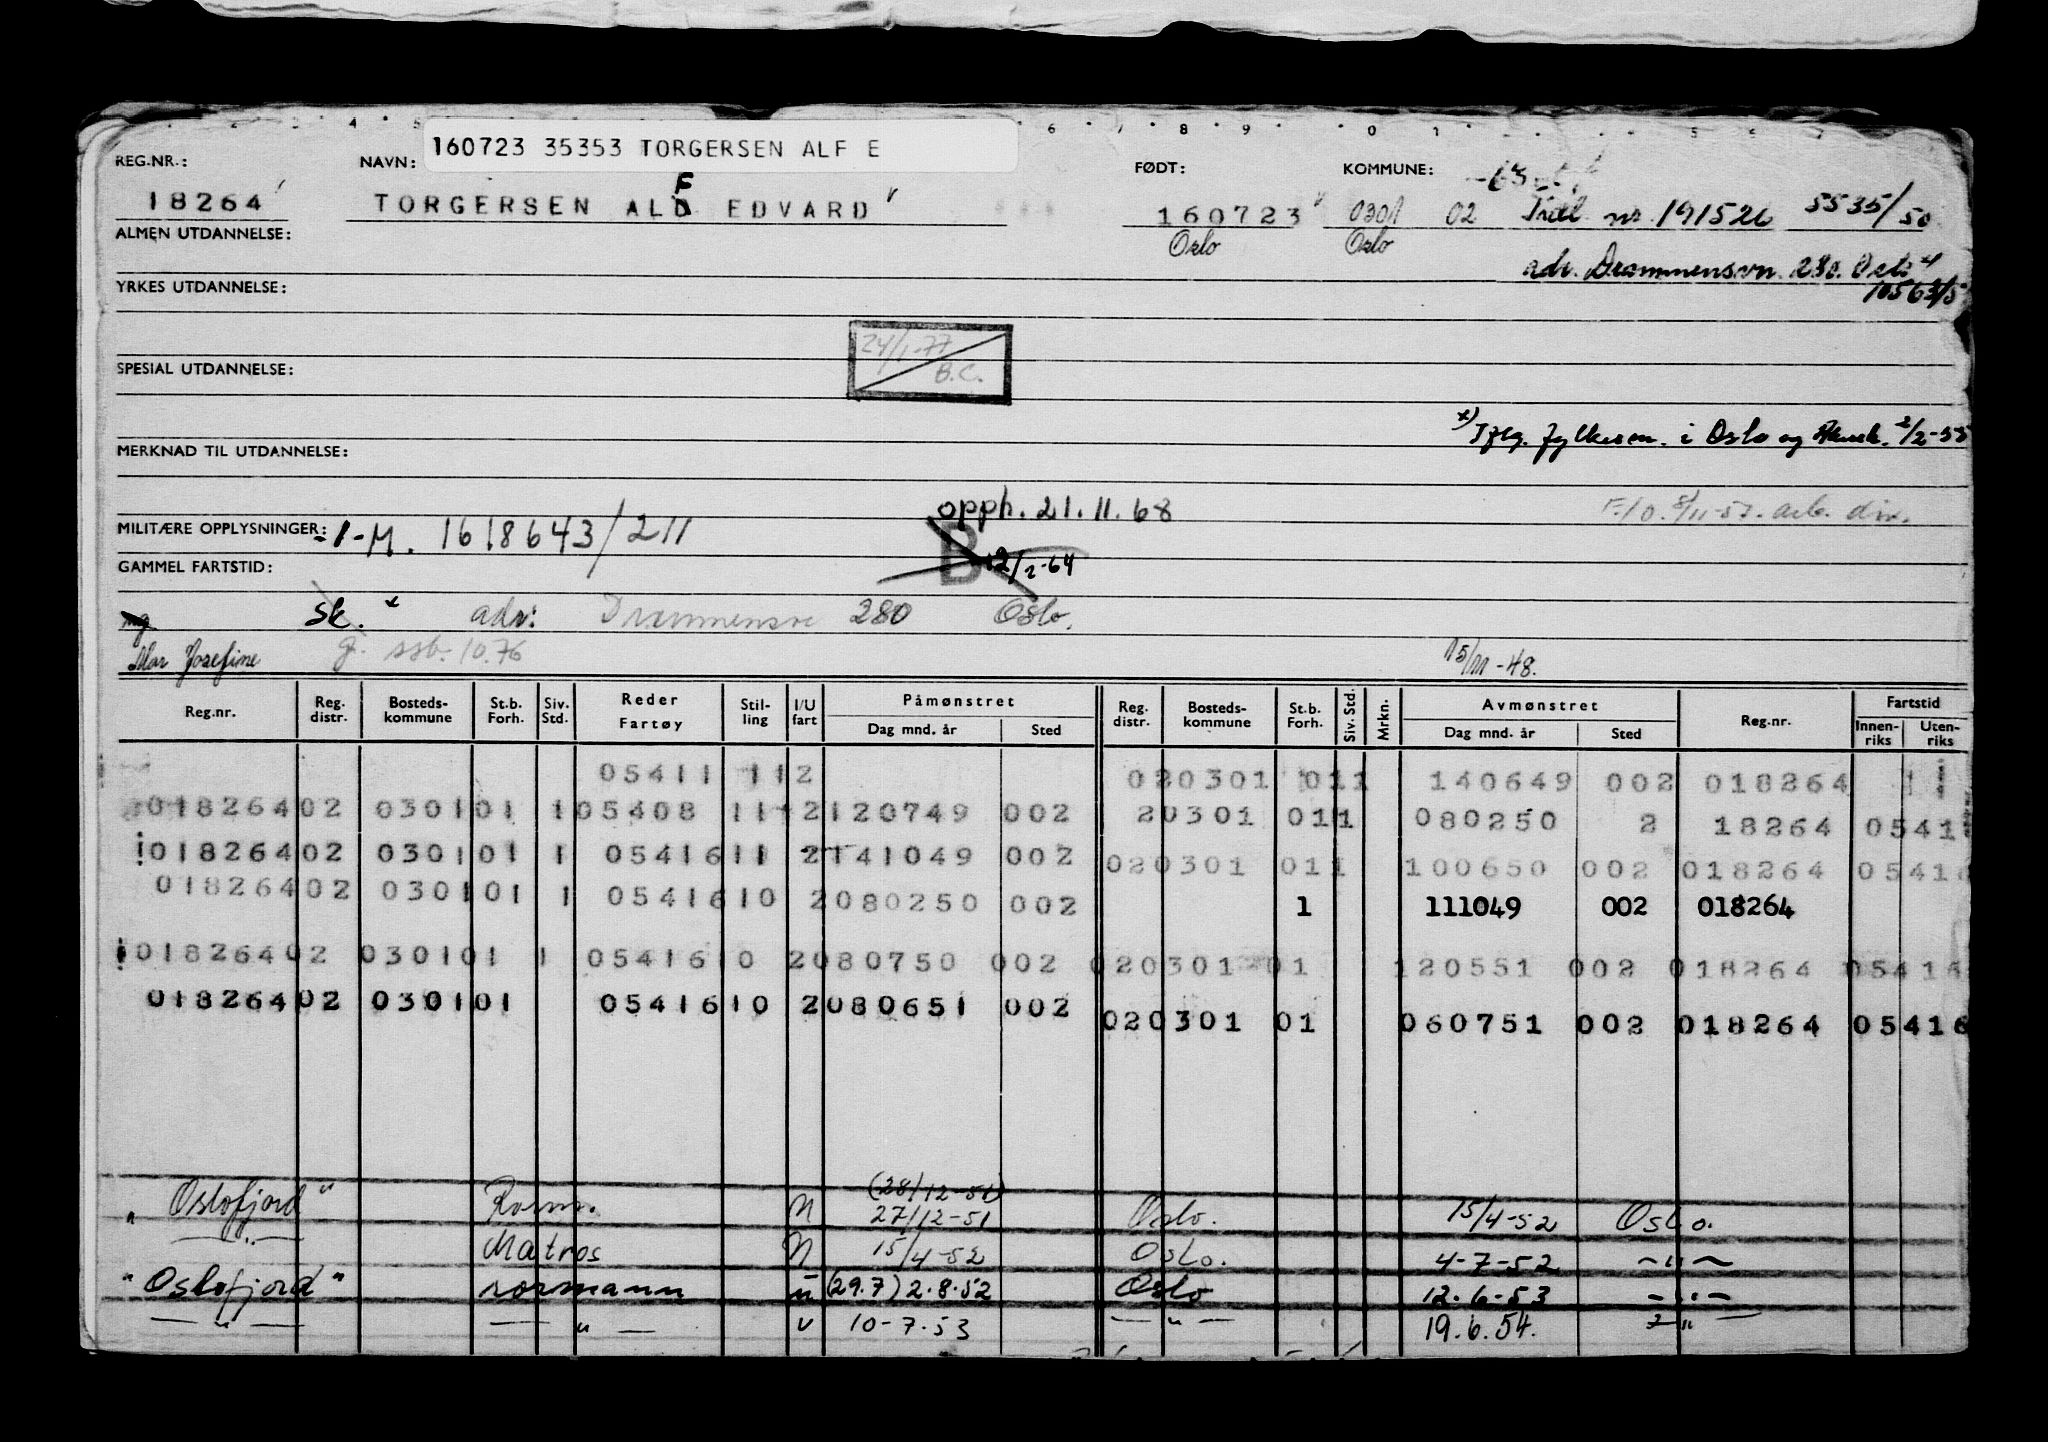 160723 35353 TORGERSEN ALF E
REG.NR.: NAVN: FØDT: KOMMUNE:
18264 TORGERSEN ALF EDVARD 160723 0301 02 nr. 191526 5535/50
Oslo Oslo
ALMEN UTDANNELSE:
adr. Drammensvn. 280. Oslo
YRKES UTDANNELSE:
24/1-77
B.C.
SPESIAL UTDANNELSE:
x) i Oslo og 2/2-55
MERKNAD TIL UTDANNELSE:
opph. 21.11.68
MILITÆRE OPPLYSNINGER: 1-M. 1618643/211
B 12/2-64
GAMMEL FARTSTID:
sk. x adr: Drammensvn 280 Oslo.
Mor Josefine g. ssb. 10.76 15/11-48.
Reg.nr. Reg. distr. Bosteds-kommune St.b. Forh. Siv. Std. Reder Fartøy Stil-ling I/U fart Påmønstret Dag mnd. år Sted Reg. distr. Bosteds-kommune St.b. Forh. Siv. Std. Mrkn. Avmønstret Dag mnd. år Sted Reg.nr. Fartstid Innen-riks Uten-riks
05411 112 020301 011 140649 002 018264
01826402 030101 105408 11 2120749 002 20301 011 080250 2 18264 0541
01826402 030101 1 0541611 2141049 002 020301 011 100650 002 018264 05416
01826402 030101 1 0541610 2080250 002 1 111049 002 018264
01826402 030101 1 0541610 2080750 002 020301 01 120551 002 018264 05416
01826402 030101 0541610 2080651 002 020301 01 060751 002 018264 05416
(28/12-51)
"Oslofjord" Rorm. U 27/12-51 Oslo. 15/4-52 Oslo.
—"— Matros U 15/4-52 Oslo. 4-7-52 —"—
"Oslofjord" rormann u (29.7) 2.8.52 Oslo 12.6-53 —"—
—"— —"— u 10-7-53 —"— 19.6.54. —"—